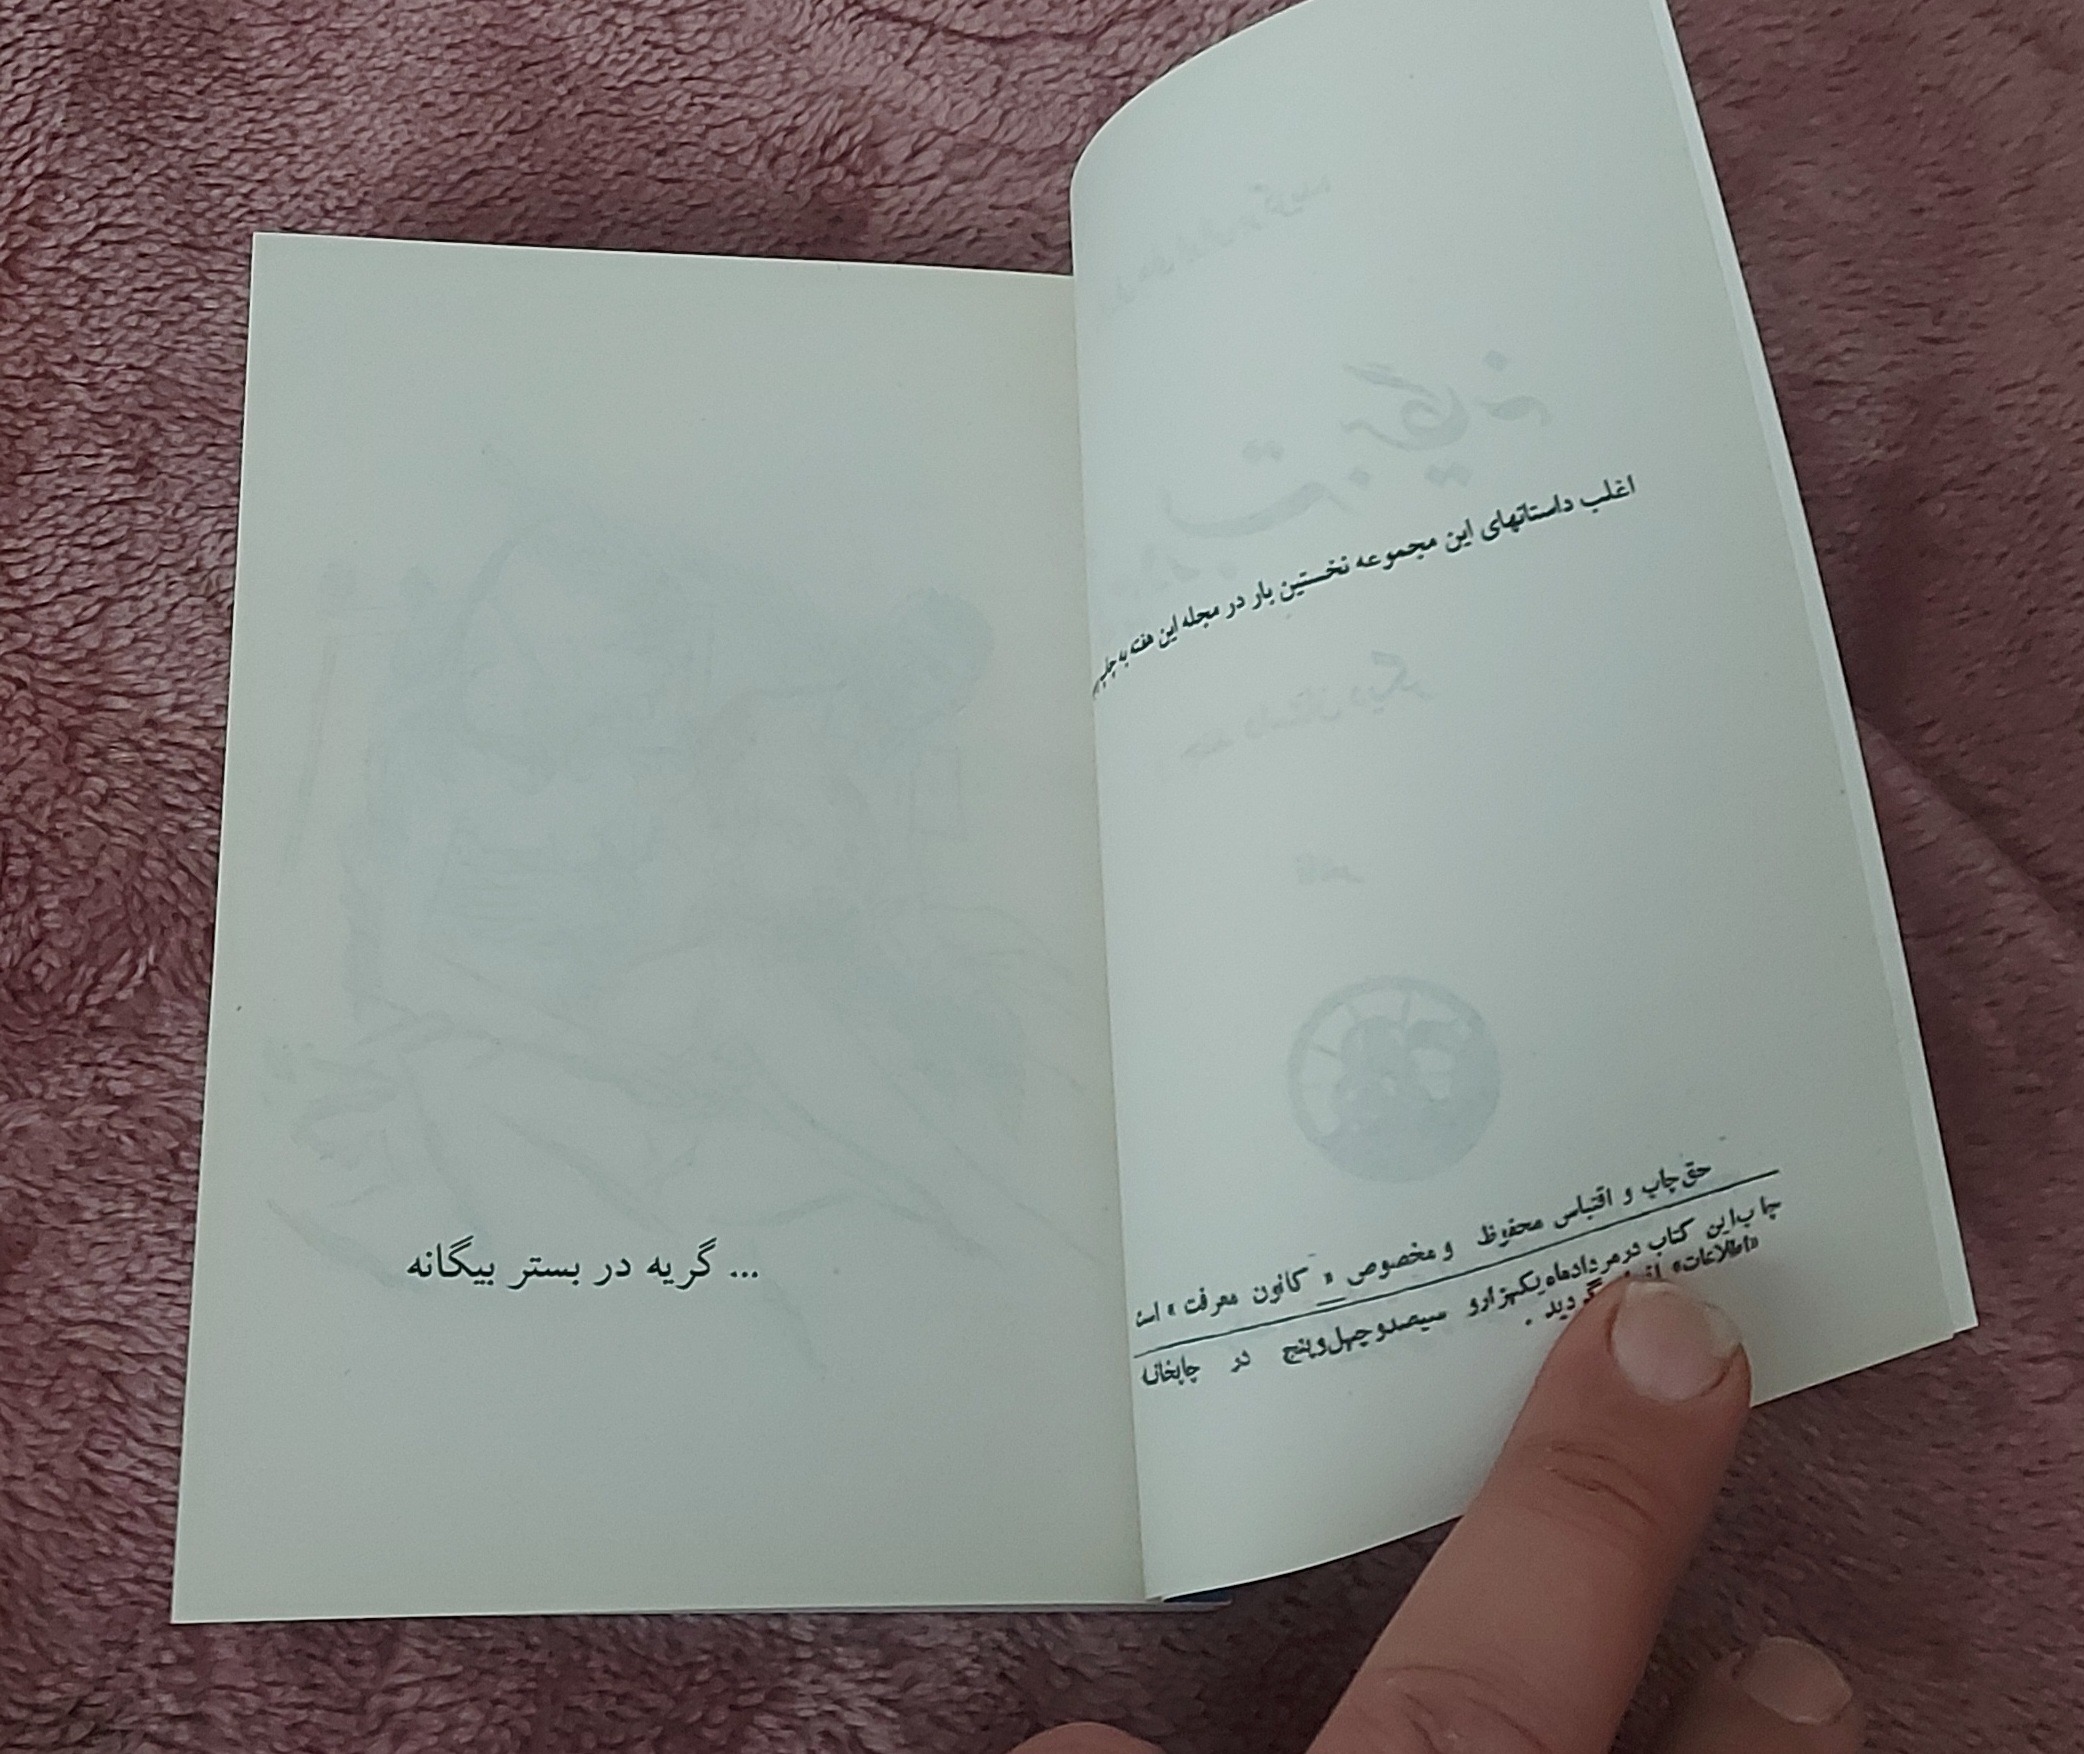 اغلب داستانهای این مجموعه نخستین بار در مجله این هفته به چاپ
حق چاپ و اقتباس محفوظ و مخصوص « کانون معرفت » است
چاپ این کتاب در مرداد ماه یکهزار و سیصد و چهل و پنج در چاپخانه
«اطلاعات» گردید .
... گریه در بستر بیگانه